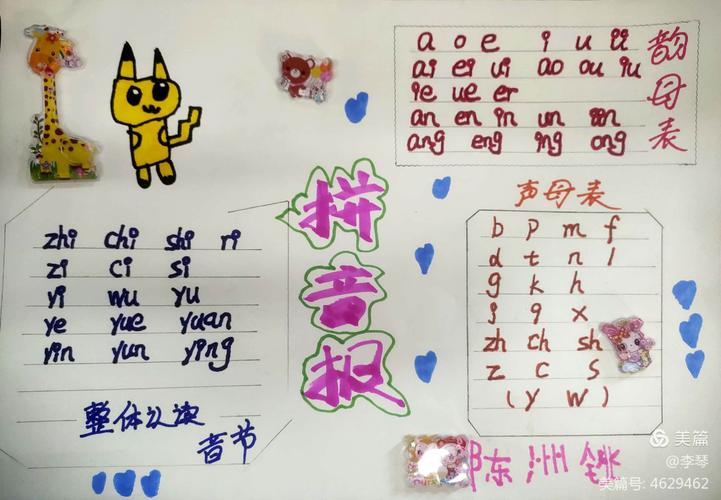 a o e i u ü
ai ei ui ao ou iu
ie ue er
an en in un ün
ang eng ing ong
韵母表
拼音报
声母表
b p m f
d t n l
g k h
j q x
zh ch sh
z c s
(y w)
zhi chi shi ri
zi ci si
yi wu yu
ye yue yuan
yin yun ying
整体认读
音节
陈洲
美篇
@李琴
美篇号: 4629462